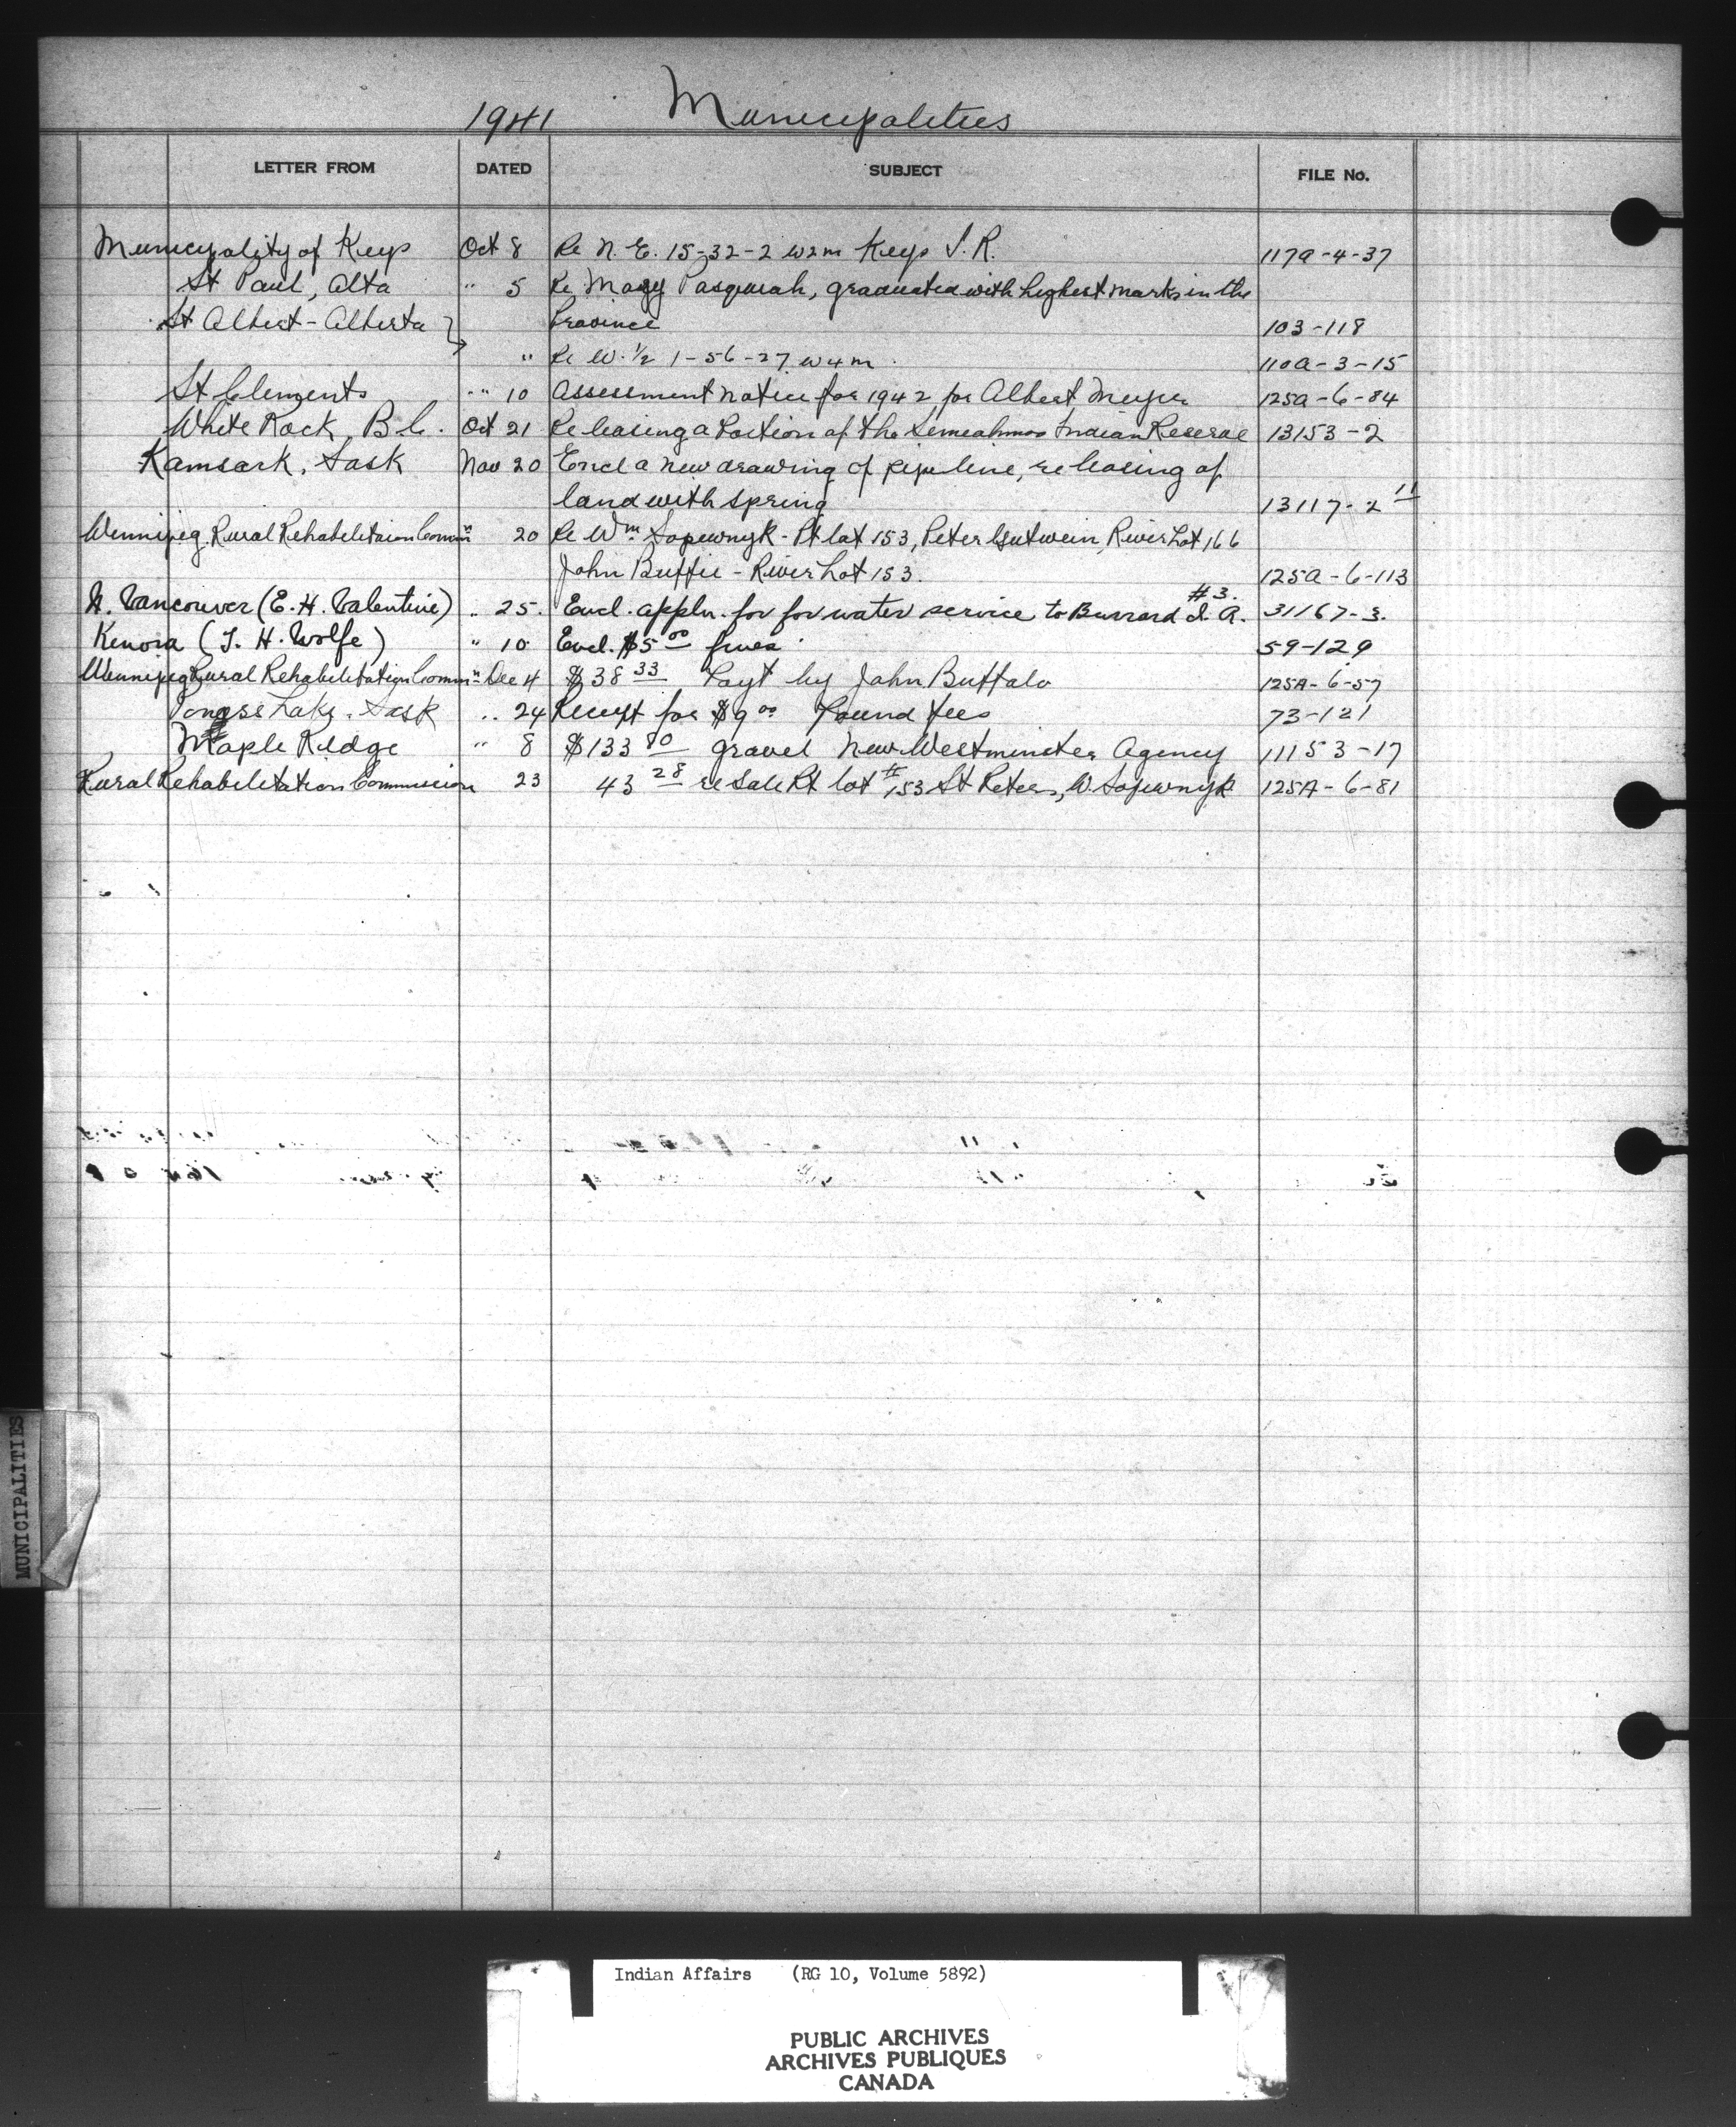 1941 Municipalities
LETTER FROM DATED SUBJECT FILE No.
Municipality of Keys Oct 8 Re N.E. 15-32-2 W2m Keys I.R. 117a-4-37
St Paul, Alta " 5 Re Mary Pasquah, graduated with highest marks in the
St Albert - Alberta Province 103-118
" Re W. 1/2 1-56-27 W4m. 110a-3-15
St Clements " 10 Assessment notice for 1942 for Albert Meyer 125a-6-84
White Rock, B.C. Oct 21 Re leasing a Portion of the Semiahmoo Indian Reserve 13153-2
Kamsack, Sask Nov 20 Encl a new drawing of pipe line, re leasing of
land with spring 13117-2 11
Winnipeg Rural Rehabilitaion Comm'n 20 Re Wm Sopewnyk - Pt lot 153, Peter Gutwein, River Lot 166
John Buffie - River Lot 153. 125a-6-113
N. Vancouver (E. H. Valentine) " 25. Encl. appln. for for water service to Burrard #3. I. R. 31167-3.
Kenora (J. H. Wolfe) " 10 Encl. $5 00 fines. 59-129
Winnipeg Rural Rehabilitation Comm'n Dec 4 $38 33 Payt by John Buffalo 125A-6-57
Lake, Sask " 24 Receipt for $9 00 Pound fees 73-121
Maple Ridge " 8 $133 80 gravel New Westminster Agency 11153-17
Rural Rehabilitation Commission 23 43 28 re Sale Pt lot # 153 St Peters, W. Sopewnyk 125A-6-81
MUNICIPALITIES
Indian Affairs (RG 10, Volume 5892)
PUBLIC ARCHIVES
ARCHIVES PUBLIQUES
CANADA